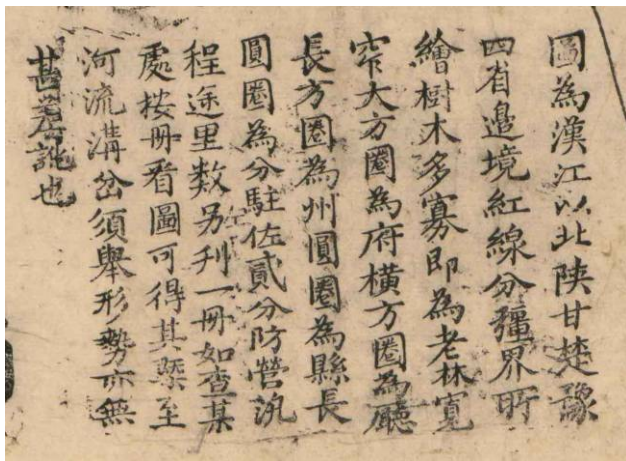 圖為漢江以北陝甘楚豫
四省邉境紅線分疆界所
繪樹木多寡即為老林寬
窄大方圈為府橫方圈為廳
長方圈為州圓圈為縣長
圓圈為分駐佐貳分防營汛
程途里数另刋一冊如查某
處按冊看圖可得其槩至
河流溝岔須舉形勢亦無
甚差訛也